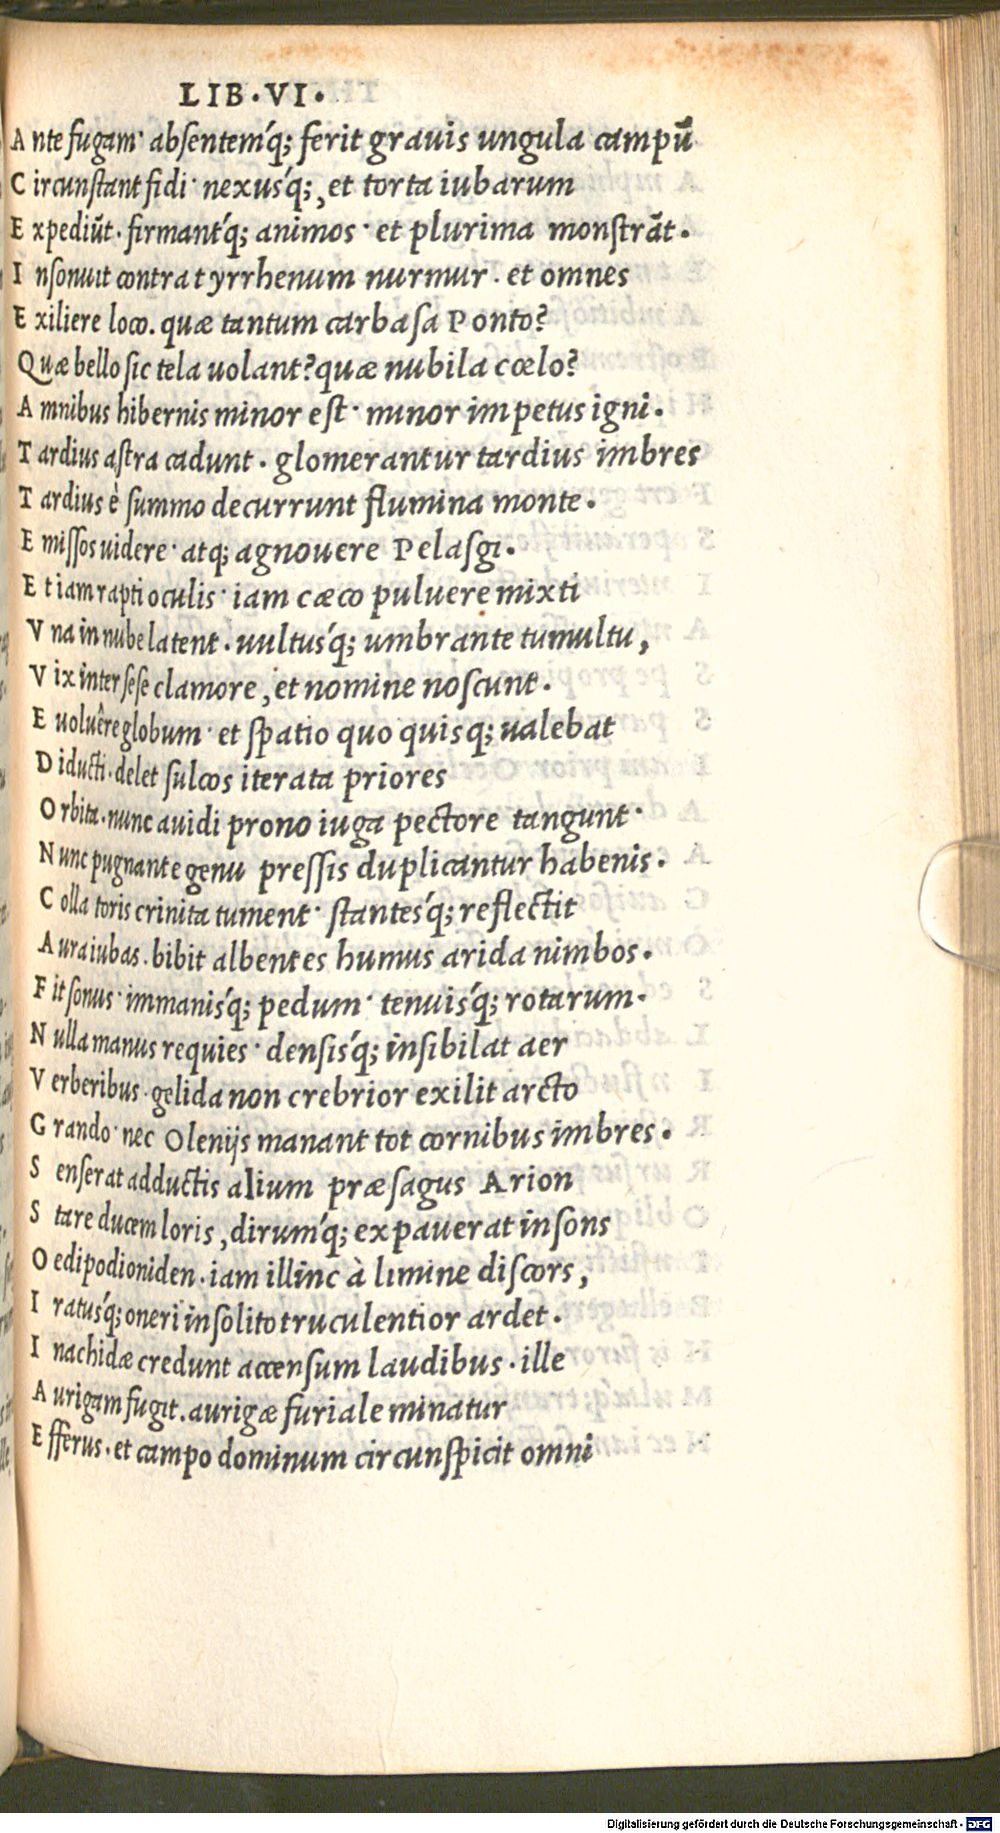 LIB.VI.
Ante fugam· absentemq́; ferit grauis ungula campũ
Circunstant fidi· nexusq́;, et torta iubarum
Expediũt. firmantq́; animos· et plurima monstrãt.
Insonuit contra tyrrhenum nurmur. et omnes
Exiliere loco. quæ tantum carbasa Ponto?
Quæ bello sic tela uolant? quæ nubila cœlo?
Amnibus hibernis minor est· minor impetus igni.
Tardius astra cadunt. glomerantur tardius imbres
Tardius è summo decurrunt flumina monte.
Emissos uidere· atq; agnouere Pelasgi.
Etiam rapti oculis· iam cæco puluere mixti
Vna in nube latent. uultusq́; umbrante tumultu,
Vix inter sese clamore, et nomine noscunt.
Euoluêre globum· et spatio quo quisq; ualebat
Diducti. delet sulcos iterata priores
Orbita. nunc auidi prono iuga pectore tangunt·
Nunc pugnante genu pressis duplicantur habenis.
Colla toris crinita tument· stantesq́; reflectit
Aura iubas. bibit albentes humus arida nimbos.
Fit sonus· immanisq́; pedum· tenuisq́; rotarum.
Nulla manus requies· densisq́; insibilat aer
Verberibus. gelida non crebrior exilit arcto
Grando· nec Olenijs manant tot cornibus imbres.
Senserat adductis alium præsagus Arion
Stare ducem loris, dirumq́; expauerat insons
Oedipodioniden. iam illinc à limine discors,
Iratusq́; oneri insolito truculentior ardet.
Inachidæ credunt accensum laudibus. ille
Aurigam fugit. aurigæ furiale minatur
Efferus. et campo dominum circunspicit omni
Digitalisierung gefördert durch die Deutsche Forschungsgemeinschaft - DFG